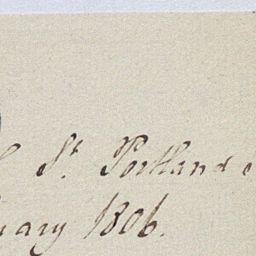 St. Portland
uary 1806.